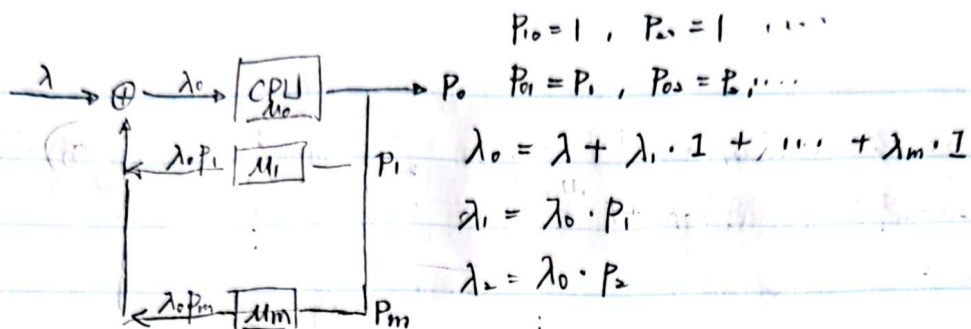 P₁₀ = 1 , P₂₀ = 1 ....
λ λ₀ CPU μ₀ P₀ P₀₁ = P₁ , P₀₂ = P₂, ....
λ₀P₁ μ₁ P₁ λ₀ = λ + λ₁ · 1 + .... + λₘ · 1
λ₁ = λ₀ · P₁
λ₂ = λ₀ · P₂
λ₀Pₘ μₘ Pₘ